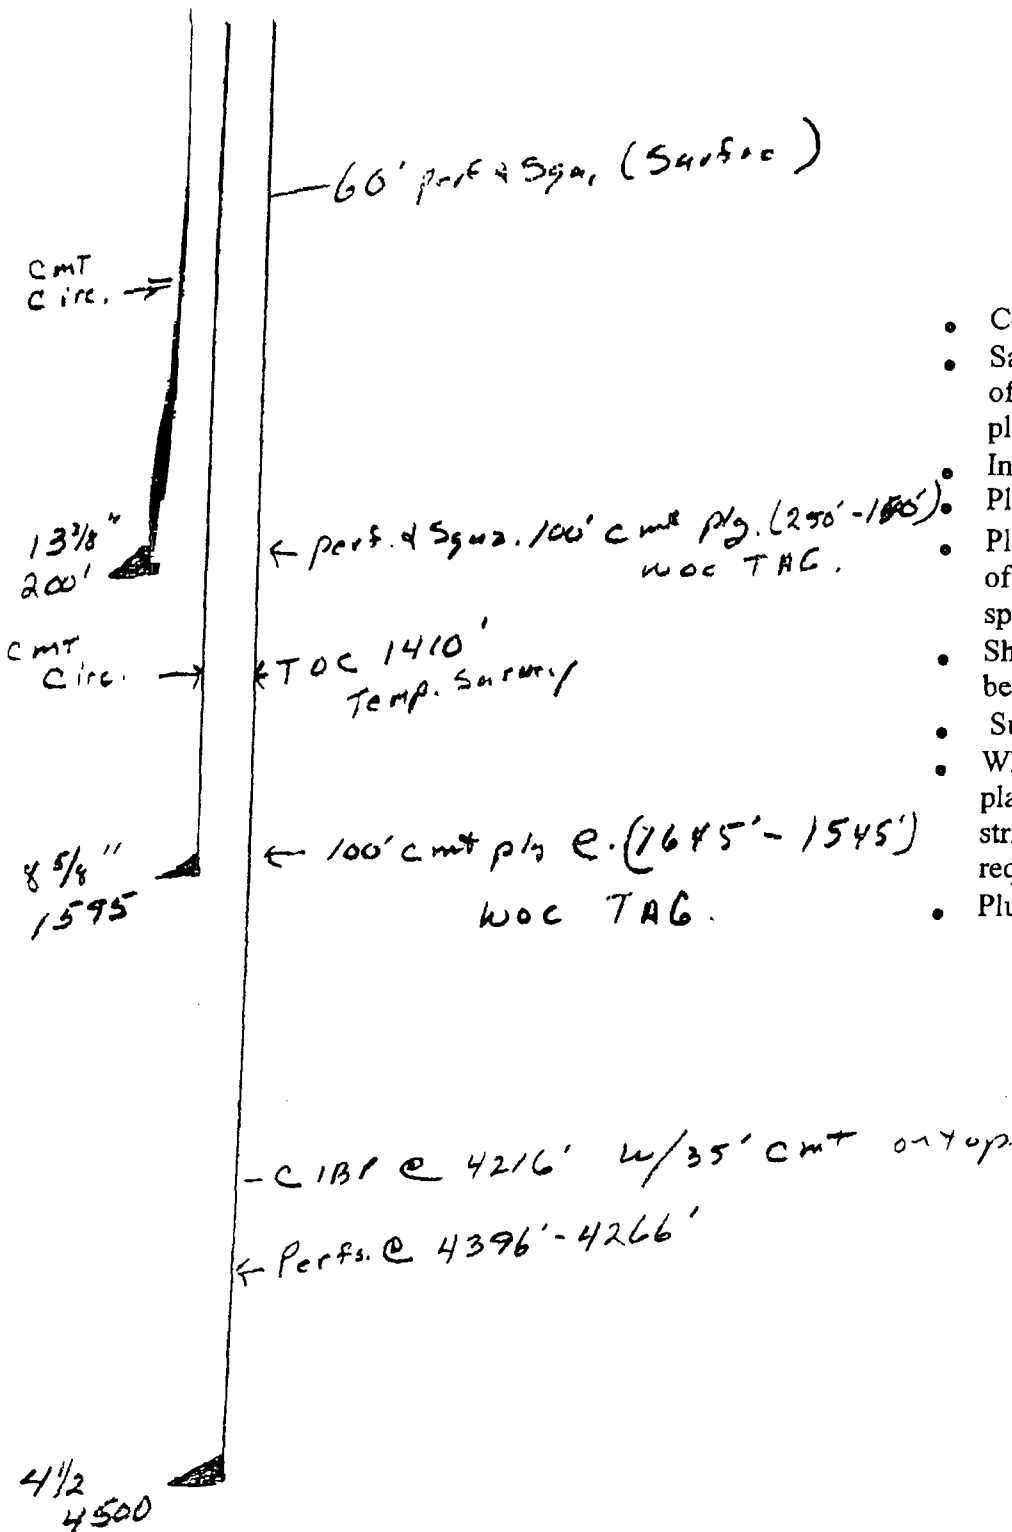 60' perf & Sqz. (Surface)
CMT
Circ. →
13 3/8"
200'
← perf. & Sqz. 100' cmt plg. (250' - 150')
WOC TAG.
CMT
Circ. →
← TOC 1410'
Temp. Survey
8 5/8"
1595
← 100' cmt plg @. (1645' - 1545')
WOC TAG.
- CIBP @ 4216' w/35' cmt on top.
← Perfs. @ 4396' - 4266'
4 1/2
4500
• C
• Sa
of
pl
• In
• Pl
• Pl
of
sp
• Sh
be
• Su
• W
pla
str
req
• Plu